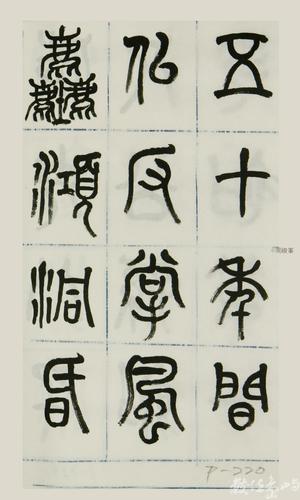 五十年間
似反掌風
塵澒洞昏
P-220